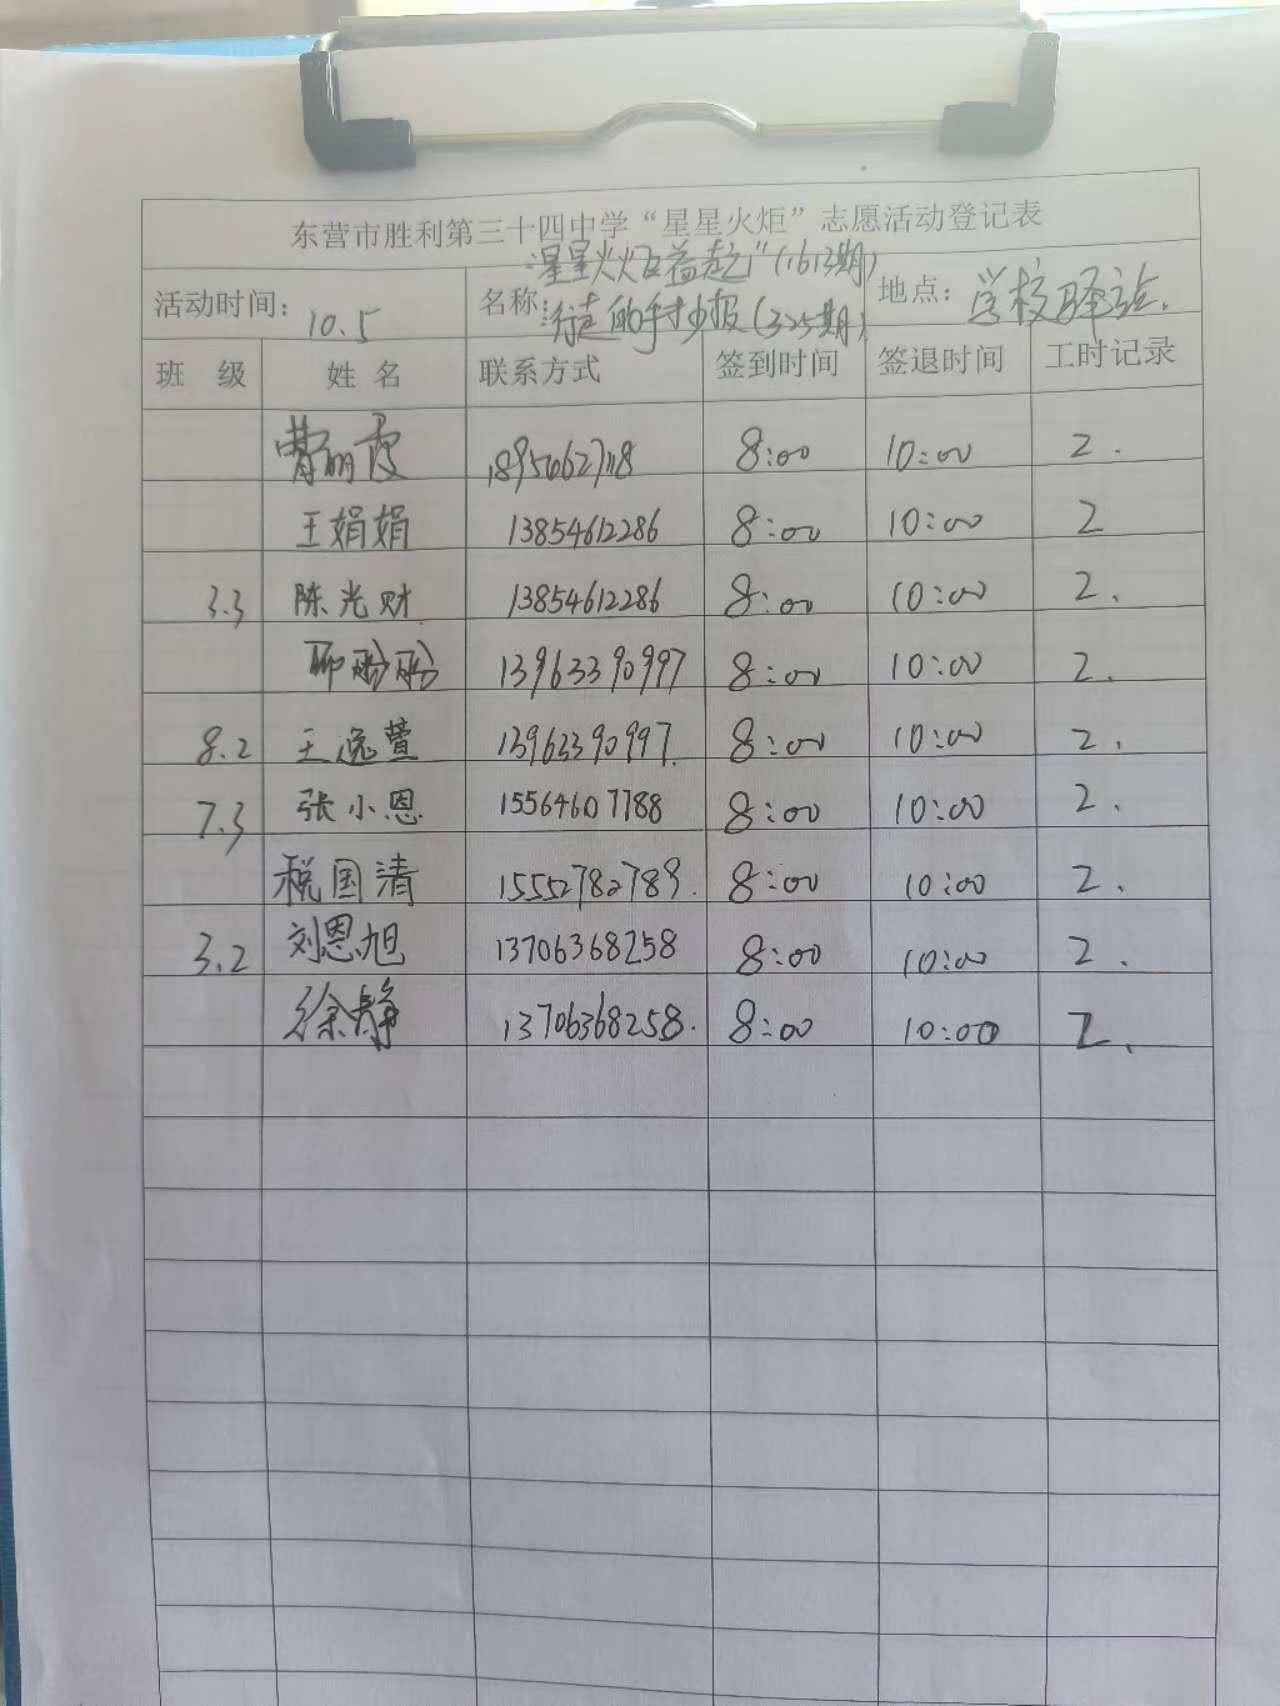 东营市胜利第三十四中学“星星火炬”志愿活动登记表
活动时间: 10.5 名称: “星星火炬益起”(1613期) 行走的手抄报(325期) 地点: 学校驿站.
班 级 姓 名 联系方式 签到时间 签退时间 工时记录
曹丽霞 8:00 10:00 2.
王娟娟 13854612286 8:00 10:00 2
3.3 陈光财 13854612286 8:00 10:00 2.
13963390997 8:00 10:00 2.
8.2 王逸萱 13963390997. 8:00 10:00 2.
7.3 张小恩 15564607788 8:00 10:00 2.
税国清 15552782789. 8:00 10:00 2.
3.2 刘恩旭 13706368258 8:00 10:00 2.
徐静 13706368258. 8:00 10:00 2.